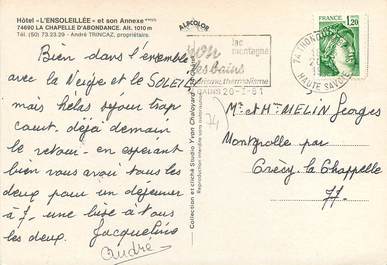 Hôtel "L'ENSOLEILLÉE" et son Annexe
74690 LA CHAPELLE D'ABONDANCE. Alt. 1010 m
Tél. (50) 73.23.29 - André TRINCAZ, propriétaire.
ALPCOLOR
Bien dans l'ensemble
avec la Neige et le SOLEIL
mais hélas séjour trop
court, déjà demain
le retour - en espérant
bien vous avoir tous les
deux pour un déjeuner
à 7 - une bise à tous
les deux. Jacqueline
André
Collection et cliché Studio Yvon
Reproduction interdite
lac
montagne
non
les bains
thermalisme
BAINS 20-3-81
74 THONON
HAUTE SAVOIE
FRANCE
1,20
74
Mr et Mme MELIN Georges
par
Crécy la Chapelle
77.